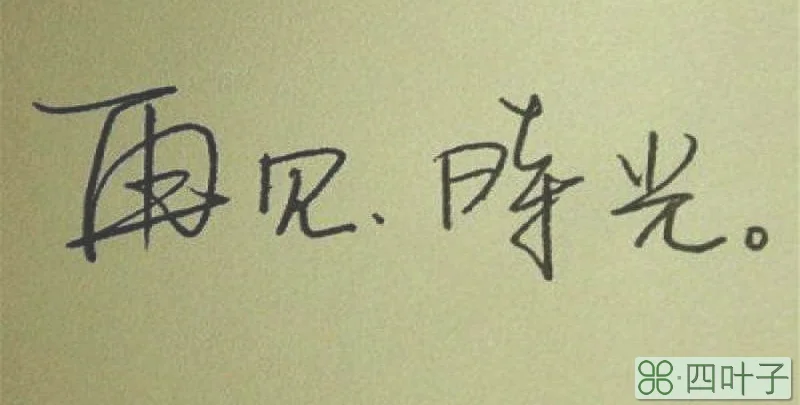 再见、時光。
四叶子